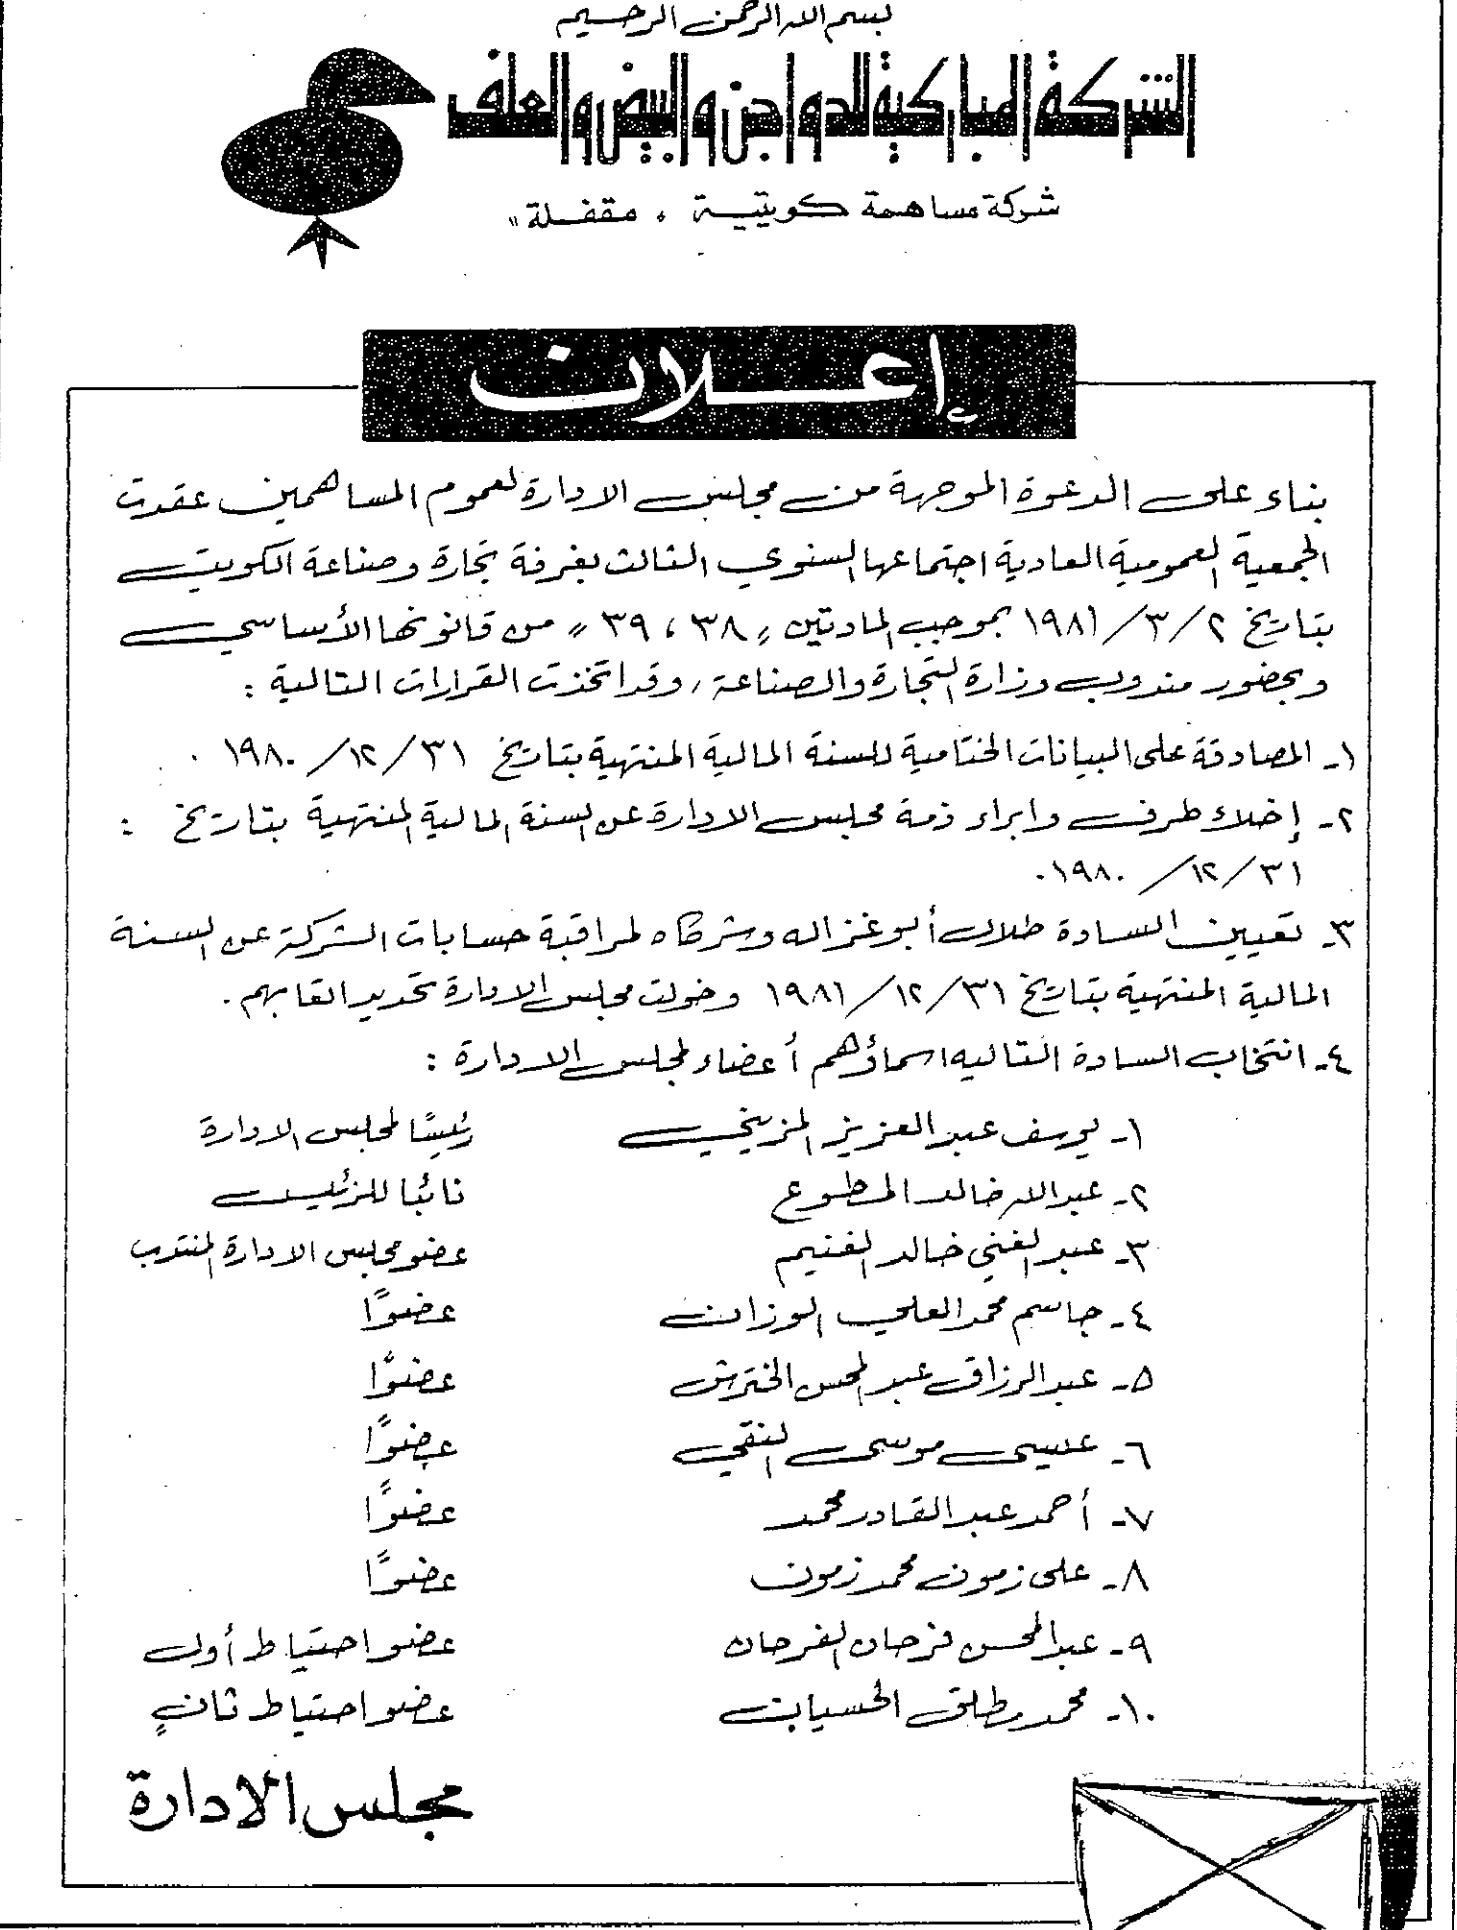 بسم الله الرحمن الرحيم
الشركة المباركية للدواجن والبيض والعلف
شركة مساهمة كويتية " مقفلة "
إعلان
بناء على الدعوة الموجهة من مجلس الادارة لعموم المساهمين عقدت
الجمعية العمومية العادية اجتماعها السنوي الثالث بغرفة تجارة وصناعة الكويت
بتاريخ ٢/٣/١٩٨١ بموجب المادتين " ٣٨ ، ٣٩ " من قانونها الأساسي
وبحضور مندوب وزارة التجارة والصناعة , وقد اتخذت القرارات التالية :
١- المصادقة على البيانات الختامية للسنة المالية المنتهية بتاريخ ٣١/١٢/١٩٨٠ .
٢- إخلاء طرف وابراء ذمة مجلس الادارة عن السنة المالية المنتهية بتاريخ :
٣١/١٢/١٩٨٠.
٣- تعيين السادة طلال أبو غزاله وشركاه لمراقبة حسابات الشركة عن السنة
المالية المنتهية بتاريخ ٣١/١٢/١٩٨١ وخولت مجلس الادارة تحديد اتعابهم .
٤- انتخاب السادة التاليه اسماؤهم أعضاء لمجلس الادارة :
١- يوسف عبد العزيز المزيني رئيسًا لمجلس الادارة
٢- عبدالله خالد المطوع نائبًا للرئيس
٣- عبد الغني خالد الغنيم عضو مجلس الادارة المنتدب
٤- جاسم محمد العلي الوزان عضوًا
٥- عبد الرزاق عبد المحسن الخترش عضوًا
٦- عيسى موسى النقي عضوًا
٧- أحمد عبد القادر محمد عضوًا
٨- على زمون محمد زمون عضوًا
٩- عبد المحسن فرحان الفرحان عضو احتياط أول
١٠- محمد مطلق الحسيان عضو احتياط ثانٍ
مجلس الادارة